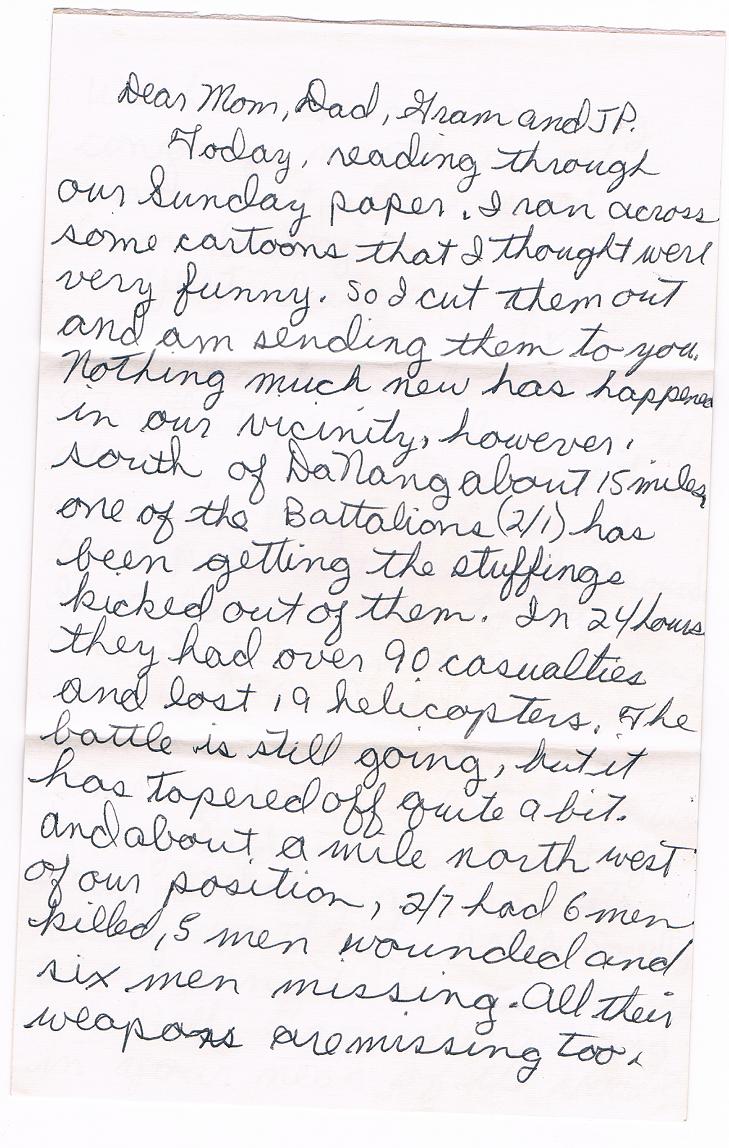 Dear Mom, Dad, Gram and JP.
Today, reading through
our Sunday paper. I ran across
some cartoons that I thought were
very funny. So I cut them out
and am sending them to you.
Nothing much new has happened
in our vicinity, however,
south of DaNang about 15 miles,
one of the Battalions (2/1) has
been getting the stuffings
kicked out of them. In 24 hours
they had over 90 casualties
and lost 19 helicopters. The
battle is still going, but it
has tapered off quite a bit.
and about a mile north west
of our position, 2/7 had 6 men
killed, 5 men wounded and
six men missing. All their
weapons are missing too.